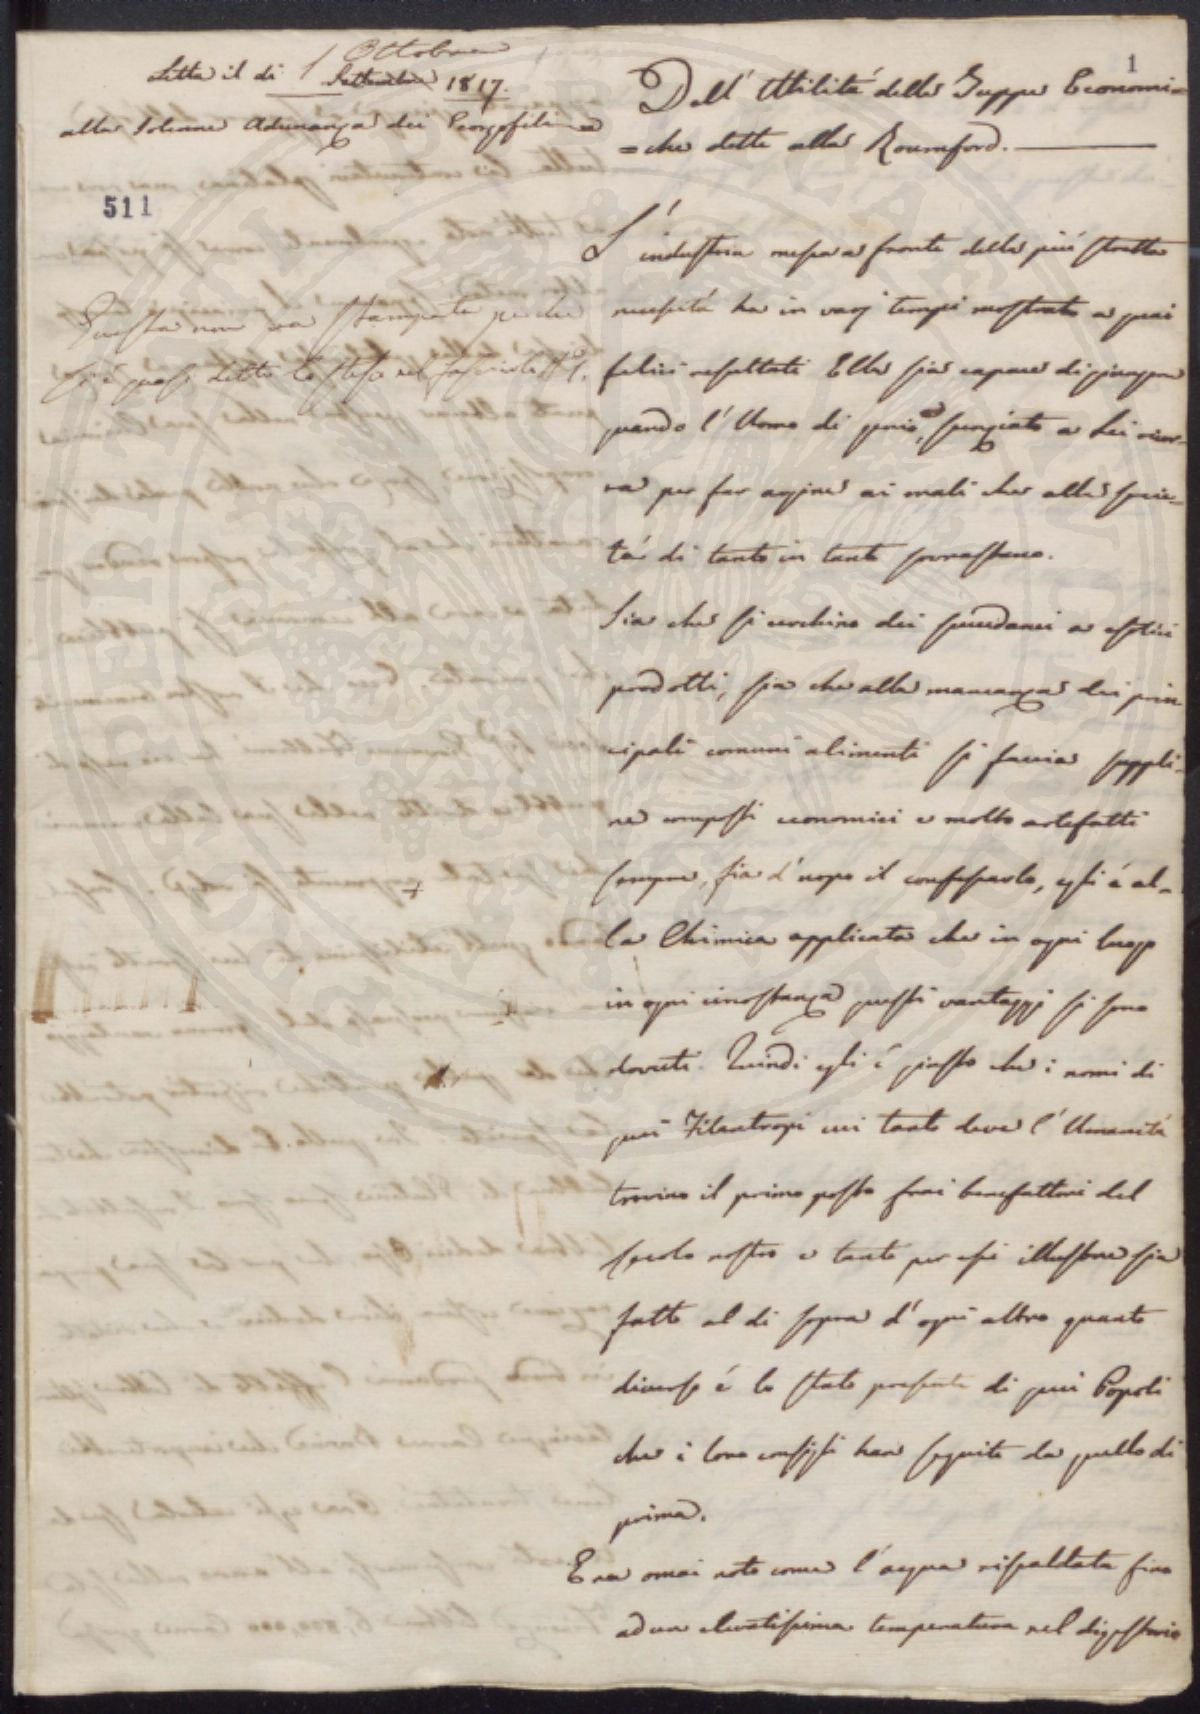 1
Letta il dì 1 Ottobre
Settembre 1817.
alla Solenne Adunanza dei Georgofili
511
Questa non va stampata perche
si è quasi detto lo stesso nel fascicolo
Dell' Utilità delle Zuppe Economi=
=che dette alla Roumford.
L'industria messa a fronte della più stretta
necessità ha in varj tempi mostrato a quai
felici resultati Ella sia capace di giungere
quando l'Uomo di genio a Lei ricor-
re per far argine ai mali che alla socie-
tà di tanto in tanto sovrastano.
Sia che si cerchino dei succedanei a esotici
prodotti, sia che alla mancanza dei prin
cipali comuni alimenti si faccia suppli-
re composti economici e molto artefatti
sempre, fia d'uopo il confessarlo, egli è al-
la Chimica applicata che in ogni luogo
in ogni circostanza questi vantaggj si sono
dovuti. Quindi egli è giusto che i nomi di
quei Filantropi cui tanto deve l'Umanità
trovino il primo posto frai benefattori del
secolo nostro e tanto per essi illustre sia
fatto al di sopra d'ogni altro quanto
diverso è lo stato presente di quei Popoli
che i loro consigli han seguito da quello di
prima.
Era omai noto come l'acqua riscaldata fino
ad una elevatissima temperatura nel digestorio